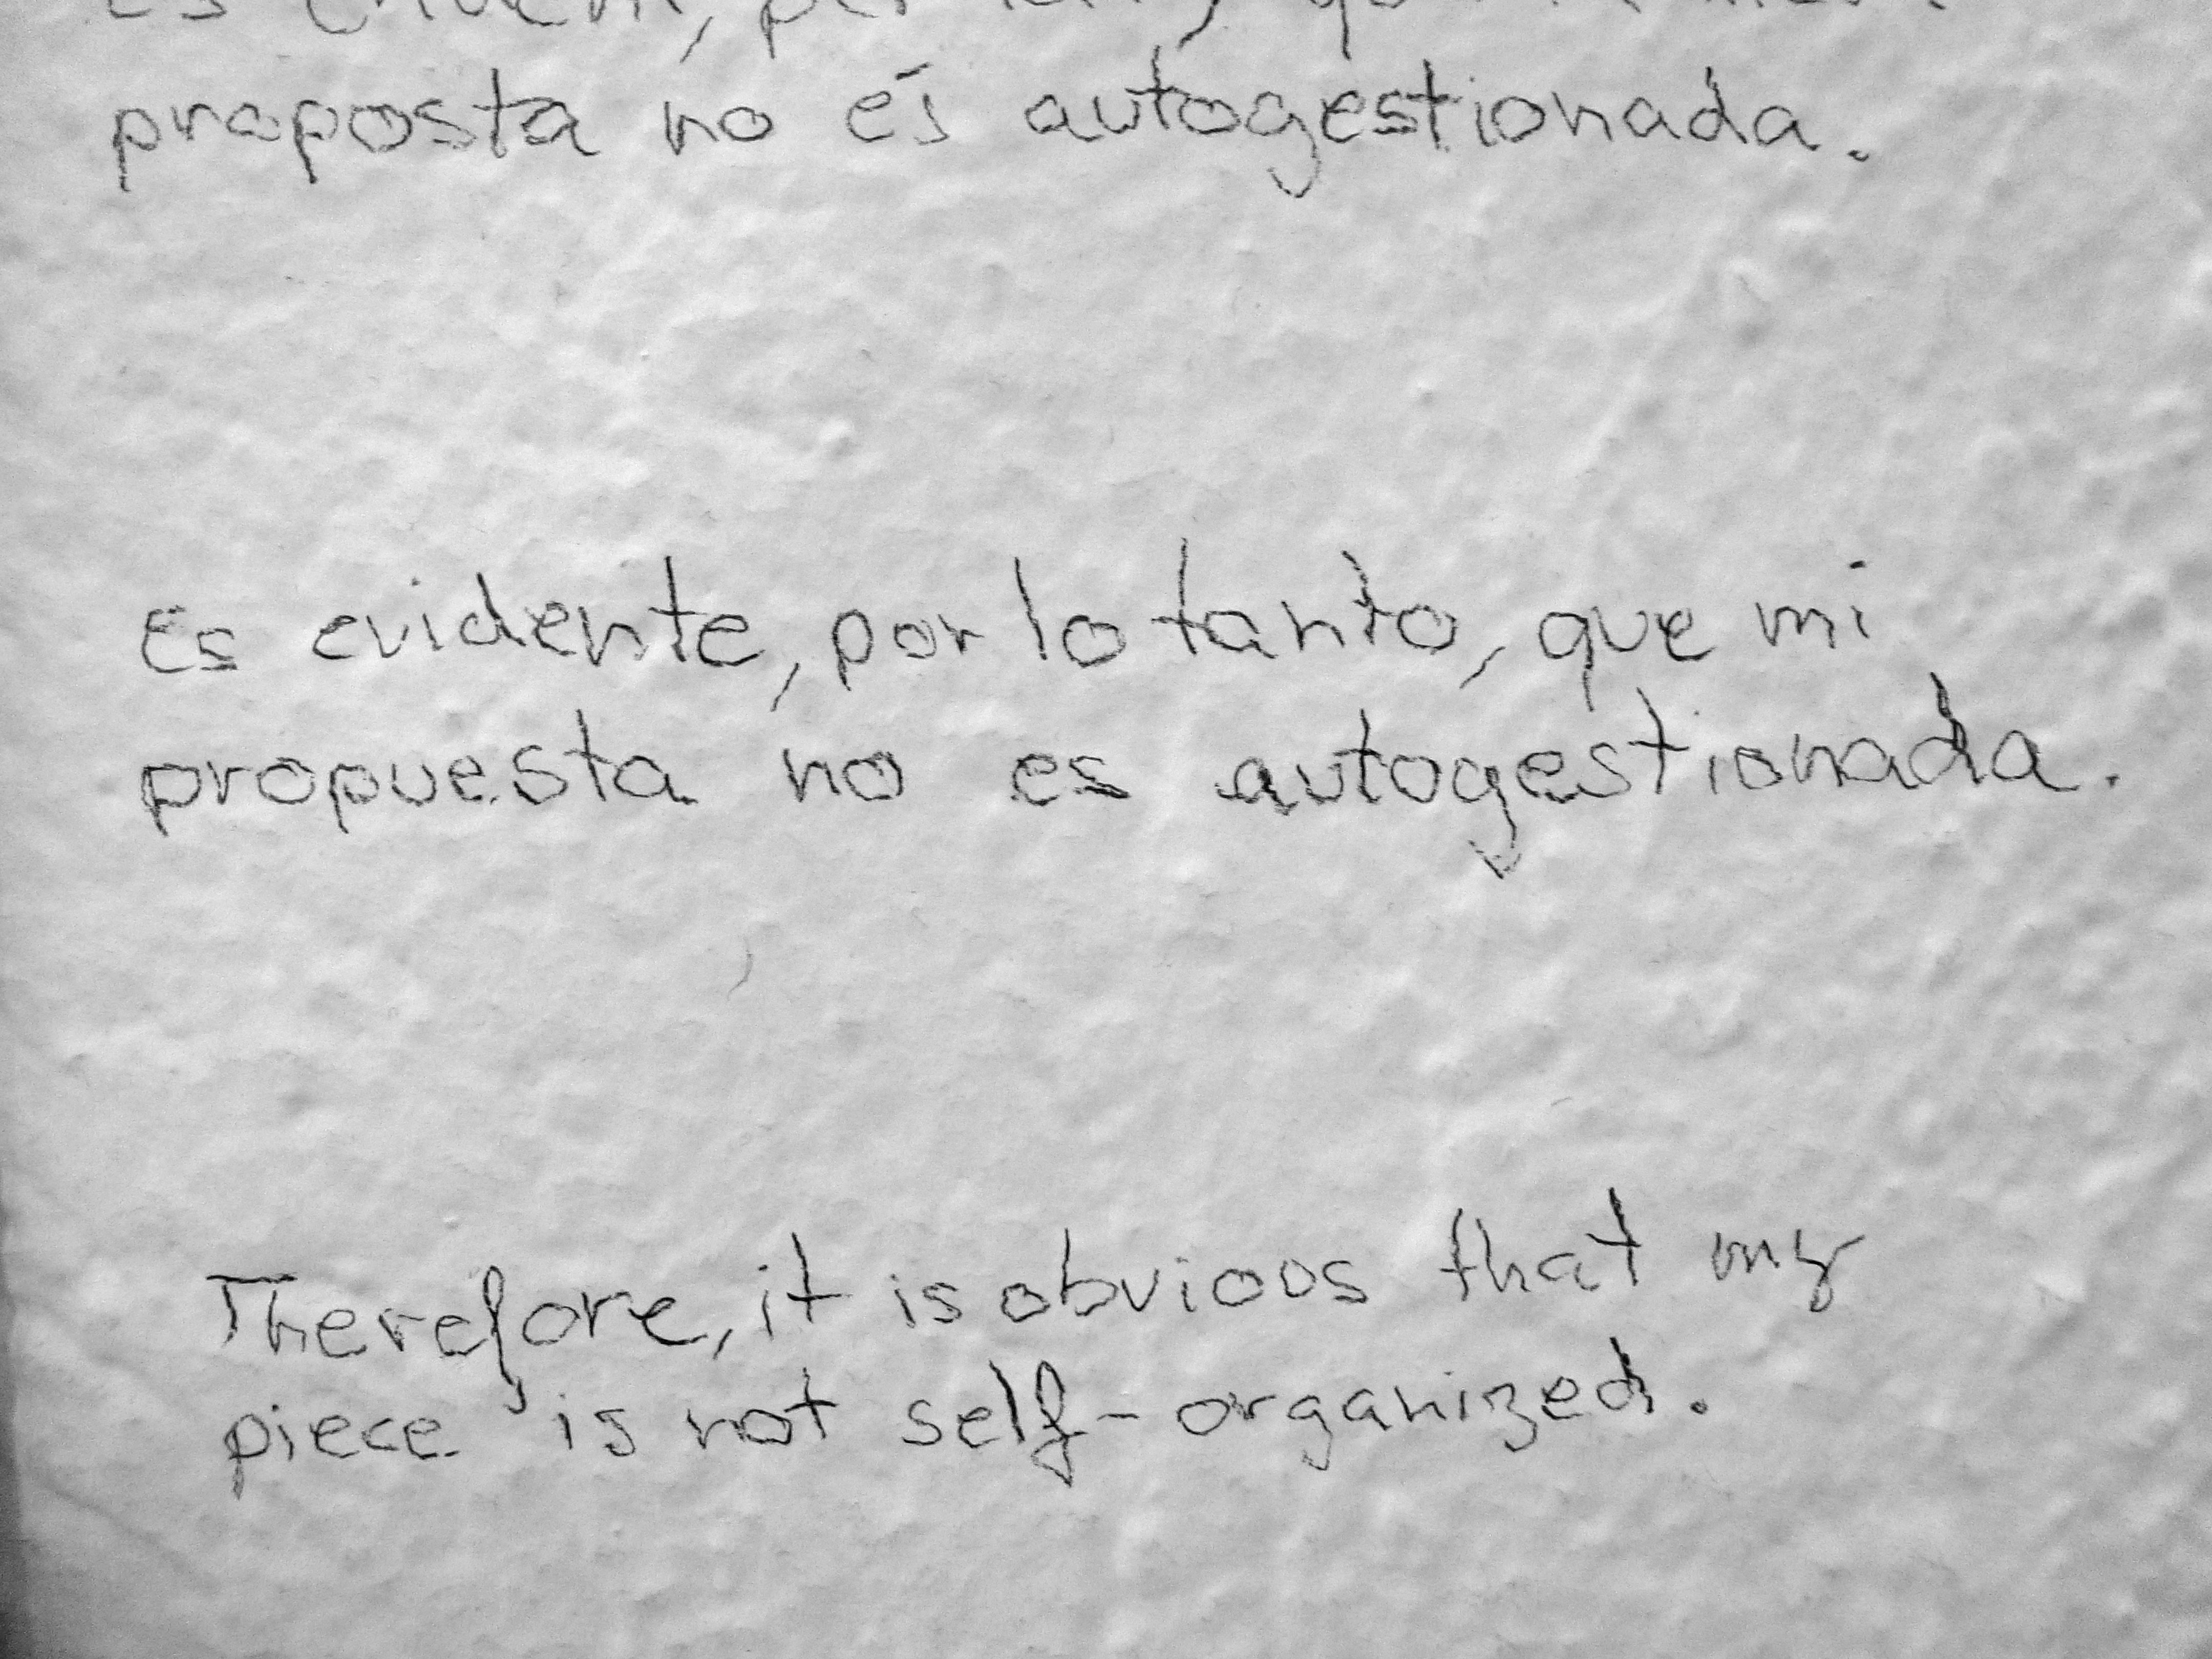 proposta no és autogestionada.
Es evidente, por lo tanto, que mi
propuesta no es autogestionada.
Therefore, it is obvious that my
piece is not self-organized.